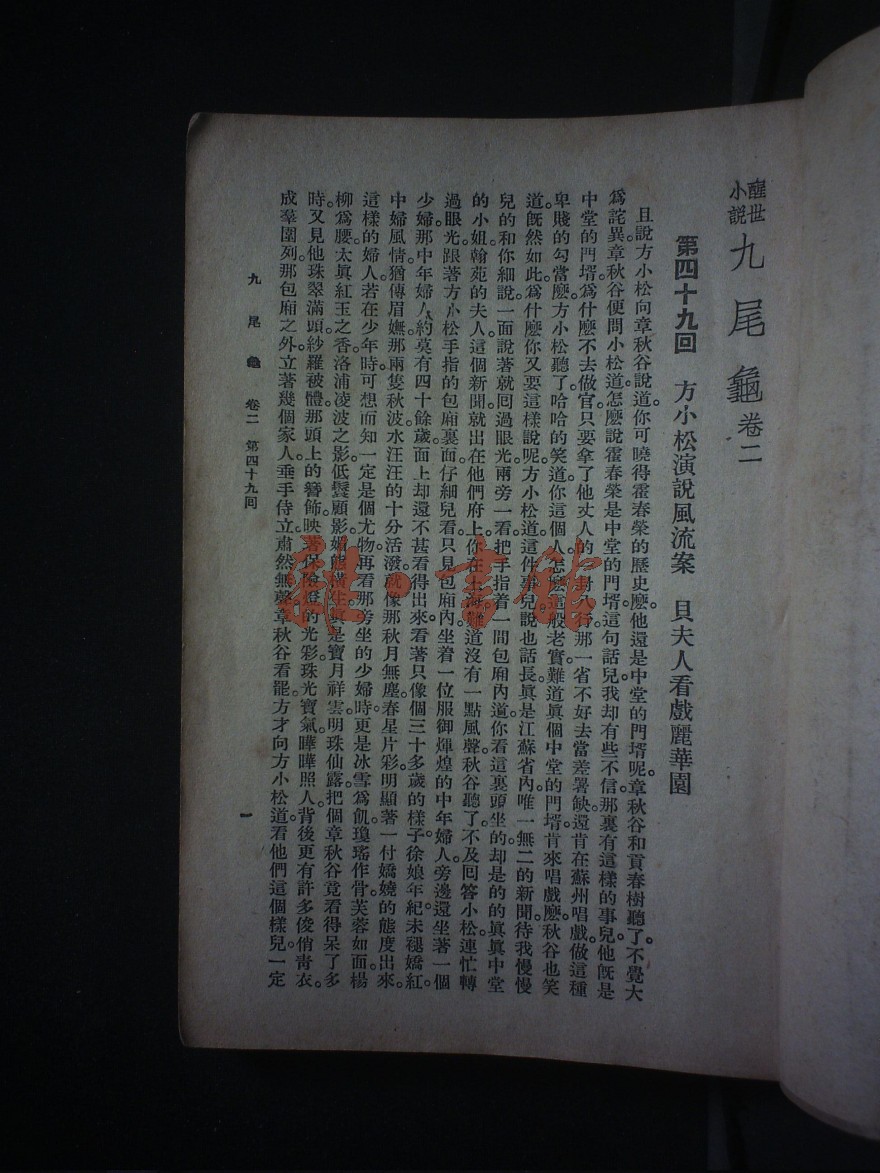 醒世小説 九尾龜 卷二
第四十九回 方小松演說風流案 貝夫人看戲麗華園
且說方小松向章秋谷說道。你可曉得霍春榮的歷史麽。他還是中堂的門壻呢。章秋谷和貢春樹聽了。不覺大
爲詫異。章秋谷便問小松道。怎麽說霍春榮是中堂的門壻。這句話兒我却有些不信。那裏有這樣的事兒。他旣是
中堂的門壻。爲什麽不去做官。只要拿了他丈人的一封八行。那一省不好去當差署缺。還肯在蘇州唱戲。做這種
卑賤的勾當麽。方小松聽了。哈哈的笑道。你這個人。怎麽這般老實。難道眞個中堂的門壻。肯來唱戲麽。秋谷也笑
道。旣然如此。爲什麽你又要這樣說呢。方小松道。這件事兒說也話長。眞是江蘇省內。唯一無二的新聞。待我慢慢
兒的和你細說。一面說著。就囘過眼光。兩旁一看。把手指着一間包廂內道。你看這裏頭坐的。却是的的眞眞中堂
的小姐。翰苑的夫人。這個新聞。就出在他們府上。你在上海。難道沒有一點風聲。秋谷聽了。不及囘答小松。連忙轉
過眼光。跟著方小松手指的包廂裏面。仔細兒看。只見包廂內坐着一位服御煇煌的中年婦人。旁邊還坐著一個
少婦。那中年婦人。約莫有四十餘歲。面上却還不甚看得出來。看著只像個三十多歲的樣子。徐娘年紀。未褪嬌紅。
中婦風情。猶傳眉嫵。那兩隻秋波。水汪汪的十分活潑。就像那秋月無塵。春星片彩。明顯著一付嬌嬈的態度出來。
這樣的婦人。若在少年時。可想而知一定是個尤物。再看那旁坐的少婦時。更是冰雪爲肌。瓊瑤作骨。芙蓉如面。楊
柳爲腰。太眞紅玉之香。洛浦凌波之影。低鬟顧影。媚態橫生。眞是寶月祥雲。明珠仙露。把個章秋谷竟看得呆了多
時。又見他珠翠滿頭。紗羅被體。那頭上的簪飾。映著保險燈的光彩。珠光寶氣。曄曄照人。背後更有許多俊俏青衣。
成羣圍列。那包廂之外。立著幾個家人。垂手侍立。肅然無聲。章秋谷看罷。方才向方小松道。看他們這個樣兒。一定
九尾龜 卷二 第四十九囘 一